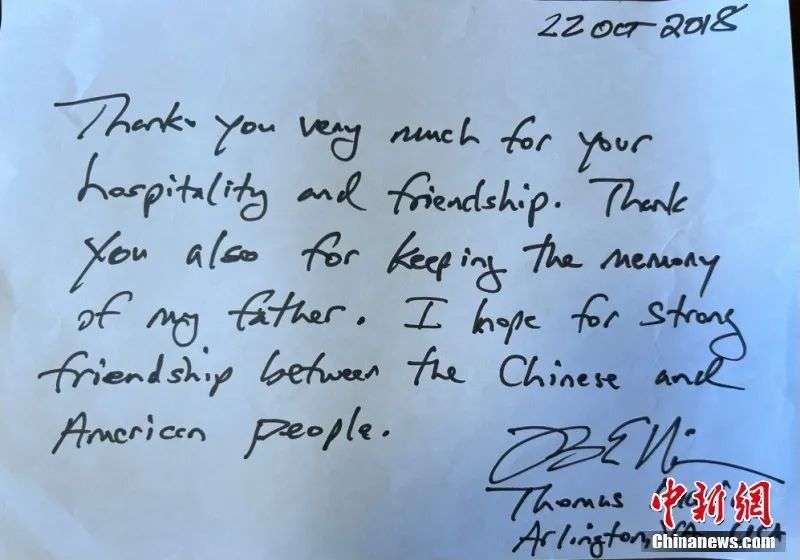 22 OCT 2018
Thank you very much for your
hospitality and friendship. Thank
you also for keeping the memory
of my father. I hope for strong
friendship between the Chinese and
American people.
Thomas
Arlington, VA USA
中新网
Chinanews.com